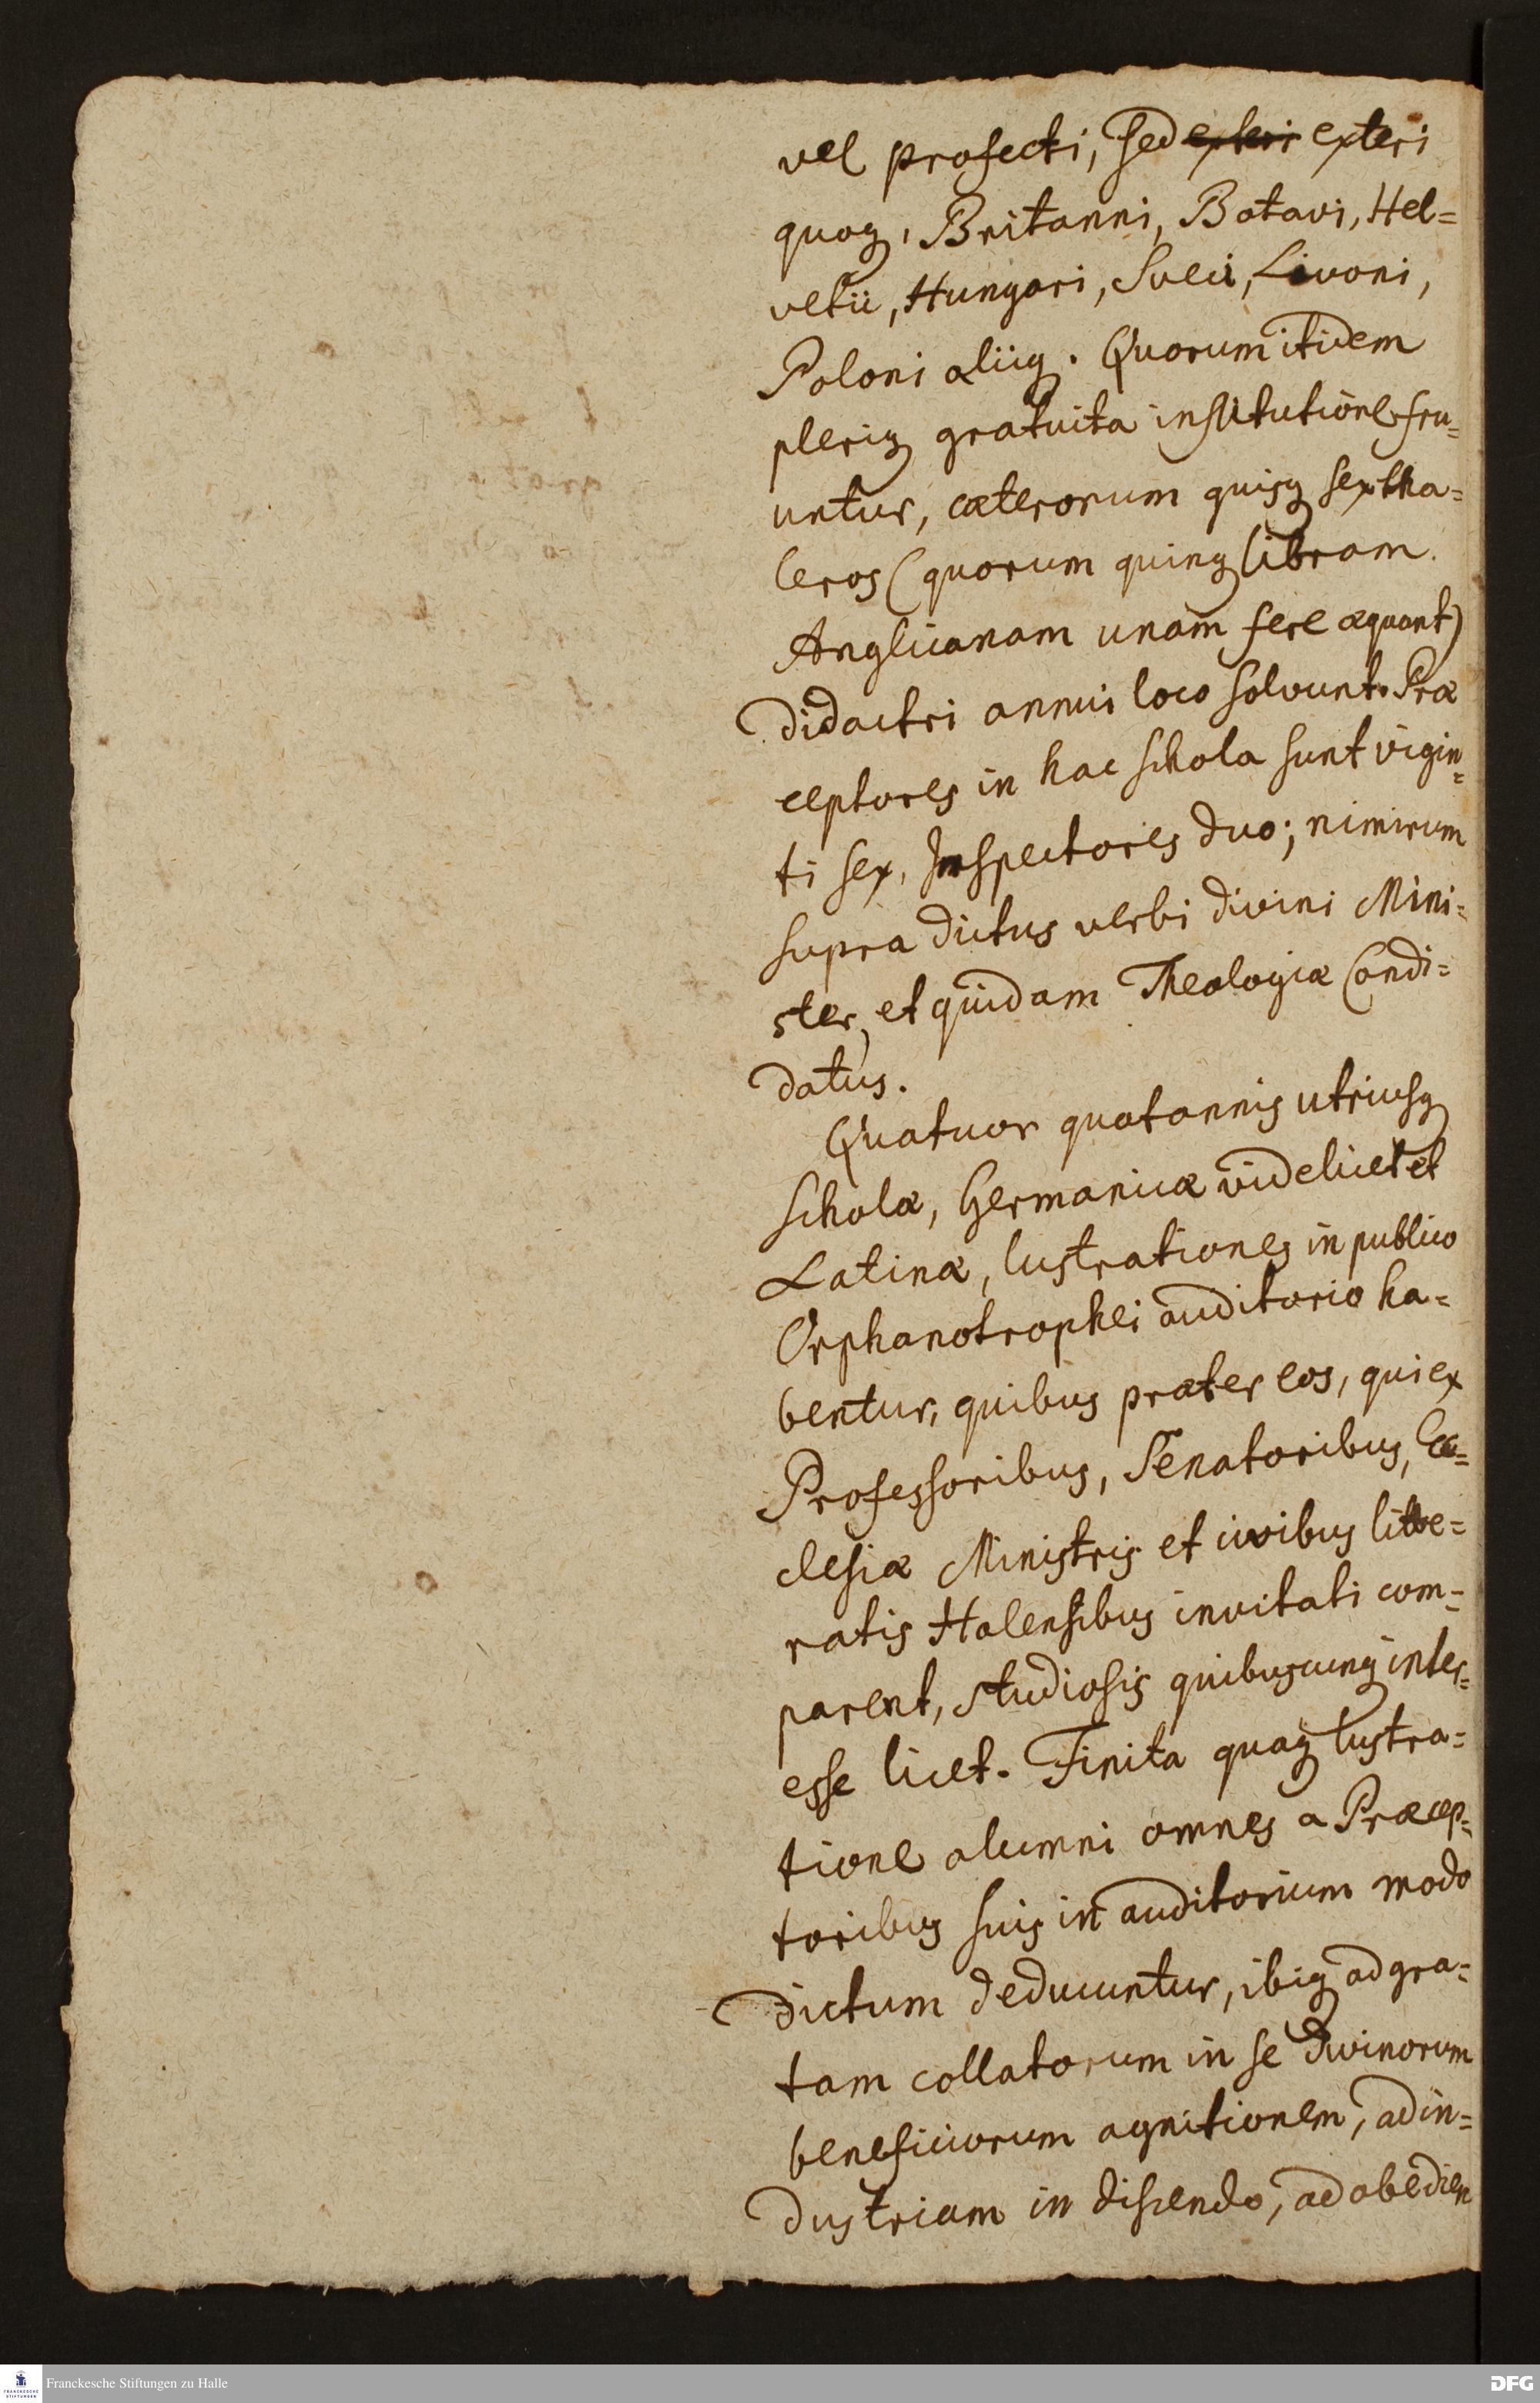 vel profecti, sed exteri exteri
quoq, Britanni, Batavi, Hel=
vetii, Hungari, Sueci, Livoni,
Poloni aliiq. Quorum itidem
pleriq gratuita institutione fru=
untur, cæterorum quisq sex tha=
leros (quorum quinq libram
Anglicanam unam fere æquant)
didactri annui loco solvunt. Præ
ceptores in hac schola sunt vigin=
ti sex, Inspectores duo; nimirum
supra dictus verbi divini Mini=
ster, et quidam Theologiæ Candi=
datus.
Quatuor quotannis utriusq
scholæ, Germanicæ videlicet et
Latinæ, lustrationes in publico
Orphanotrophei auditorio ha=
bentur, quibus præter eos, qui ex
Professoribus, Senatoribus, Ec=
clesiæ Ministris et civibus litte=
ratis Halensibus invitati com=
parent, studiosis quibuscunq inter=
esse licet. Finita quaq lustra=
tione alumni omnes a Præcep=
toribus suis in auditorium modo
dictum deducuntur, ibiq ad gra=
tam collatorum in se divinorum
beneficiorum agnitionem, ad in=
dustriam in discendo, ad obedien
Franckesche Stiftungen zu Halle
FRANCKESCHE
STIFTUNGEN
DFG